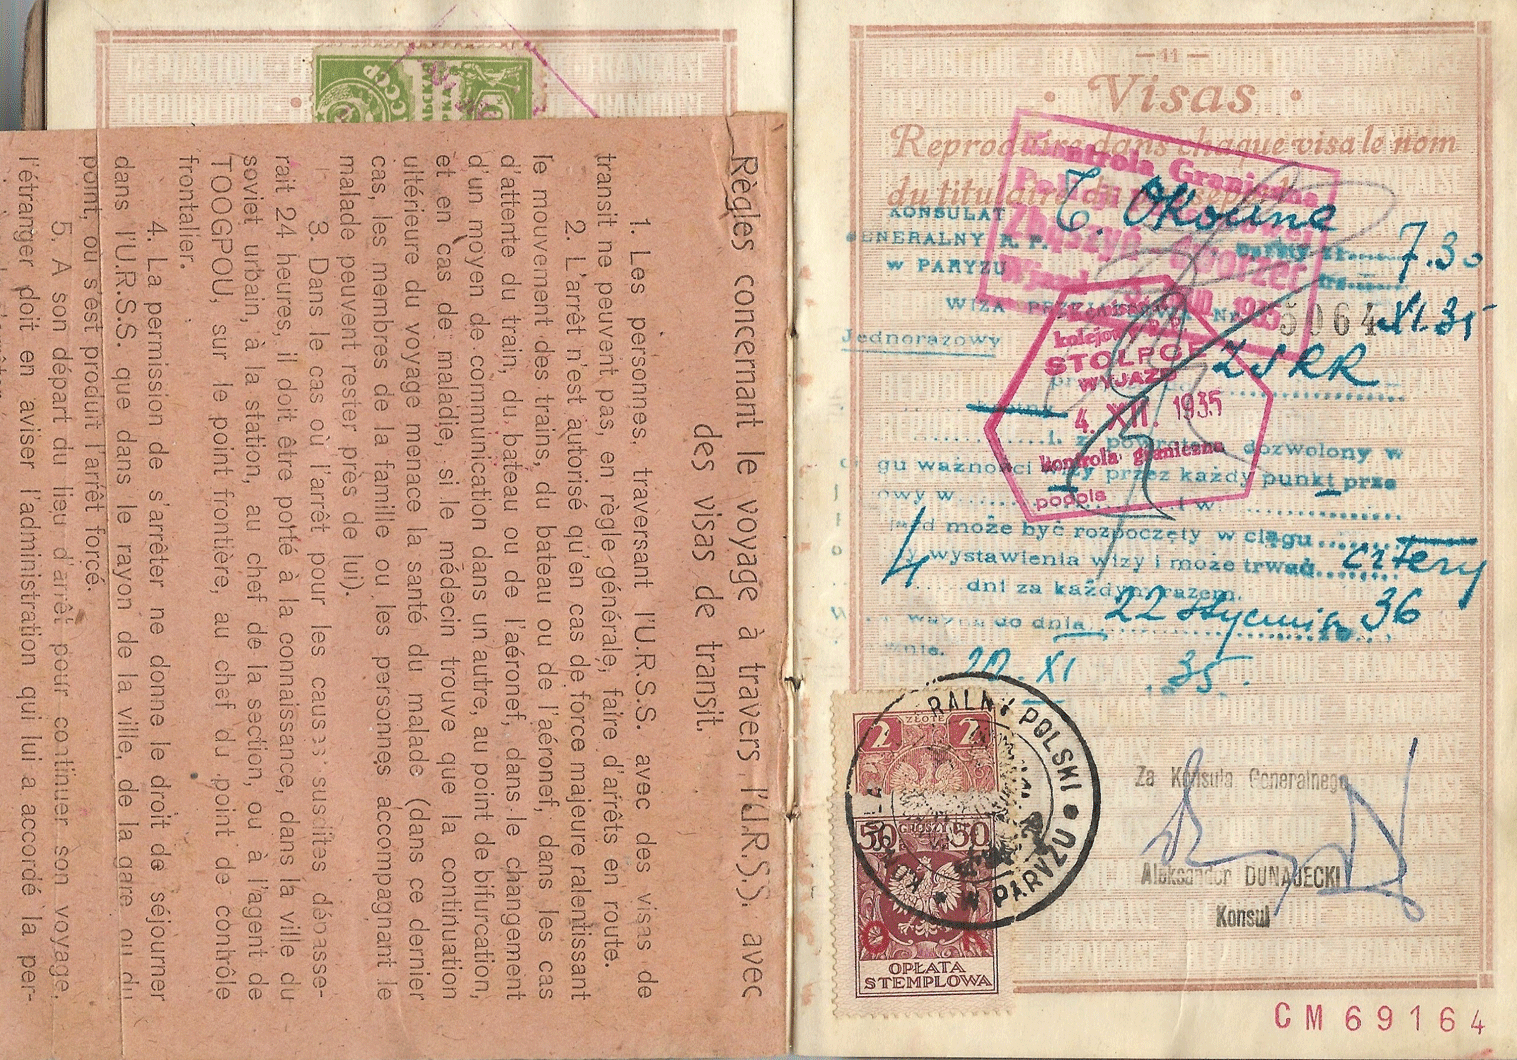 CCCP
Règles concernant le voyage à travers l'U.R.S.S. avec
des visas de transit.
1. Les personnes, traversant l'U.R.S.S. avec des visas de
transit ne peuvent pas, en règle générale, faire d'arrêts en route.
2. L'arrêt n'est autorisé qu'en cas de force majeure ralentissant
le mouvement des trains, du bateau ou de l'aéronef, dans les cas
d'attente du train, du bateau ou de l'aéronef, dans le changement
d'un moyen de communication dans un autre, au point de bifurcation,
et en cas de maladie, si le médecin trouve que la continuation
ultérieure du voyage menace la santé du malade (dans ce dernier
cas, les membres de la famille ou les personnes accompagnant le
malade peuvent rester près de lui).
3. Dans le cas où l'arrêt pour les causes suscites dépasse-
rait 24 heures, il doit être porté à la connaissance, dans la ville du
soviet urbain, à la station, au chef de la section, ou à l'agent de
TOOGPOU, sur le point frontière, au chef du point de contrôle
frontalier.
4. La permission de s'arrêter ne donne le droit de séjourner
dans l'U.R.S.S. que dans le rayon de la ville, de la gare ou du
point, ou s'est produit l'arrêt forcé.
5. A son départ du lieu d'arrêt pour continuer son voyage,
l'étranger doit en aviser l'administration qui lui a accordé la per-
— 11 —
Visas
Reproduire dans chaque visa le nom
du titulaire du passeport
Kontrola Graniczna
Zbąszyń - dworzec
1935
KONSULAT
GENERALNY R. P.
w PARYŻU
7.30
WIZA Nr. 5064 XI.35
Jednorazowy
ZSRR
STOŁPCE
WYJAZD
4. XII. 1935
kontrola graniczna
z powrotem dozwolony w
gu ważności wizy przez każdy punkt prze
owy w i w
może być rozpoczęty w ciągu
4 wystawienia wizy i może trwać cztery
dni za każdym razem.
ważna do dnia 22 stycznia 36
20. XI 35.
RALNY POLSKI
W PARYŻU
KON
2 ZŁOTE 2
50 GROSZY 50
OPŁATA
STEMPLOWA
Za Konsula Generalnego
Aleksander DUNAJECKI
Konsul
CM69164